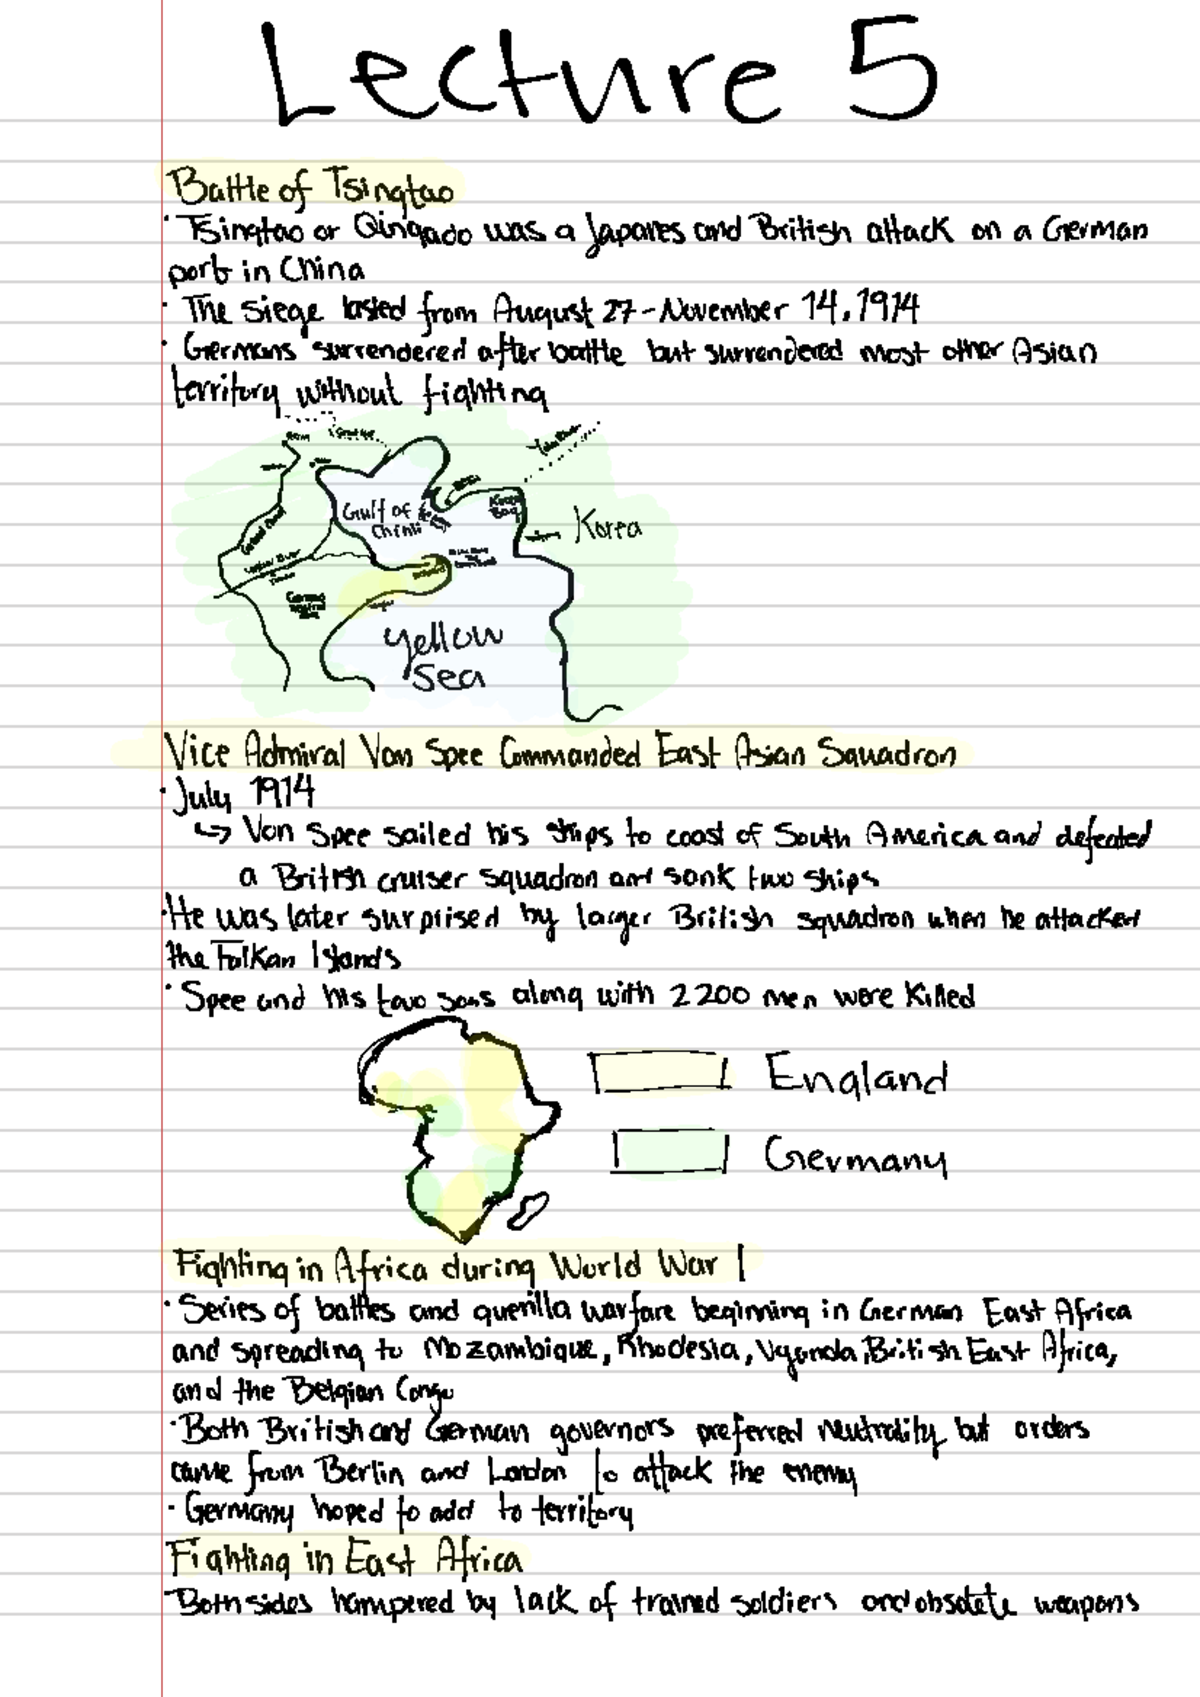 Lecture 5
Battle of Tsingtao
· Tsingtao or Qingado was a Japanes and British attack on a German
port in China
· The siege lasted from August 27-November 14, 1914
· Germans surrendered after battle but surrendered most other Asian
territory without fighting
Gulf of
Chihli
Korea
Bay
Korea
Yellow
Sea
Vice Admiral Von Spee Commanded East Asian Squadron
· July 1914
↳ Von Spee sailed his ships to coast of South America and defeated
a British cruiser squadron and sank two ships
· He was later surprised by larger British squadron when he attacked
the Falkan Islands
· Spee and his two sons along with 2200 men were killed
England
Germany
Fighting in Africa during World War 1
· Series of battles and guerilla warfare beginning in German East Africa
and spreading to Mozambique, Rhodesia, Uganda, British East Africa,
and the Belgian Congo
· Both British and German governors preferred neutrality but orders
came from Berlin and London to attack the enemy
· Germany hoped to add to territory
Fighting in East Africa
· Both sides hampered by lack of trained soldiers and obsolete weapons